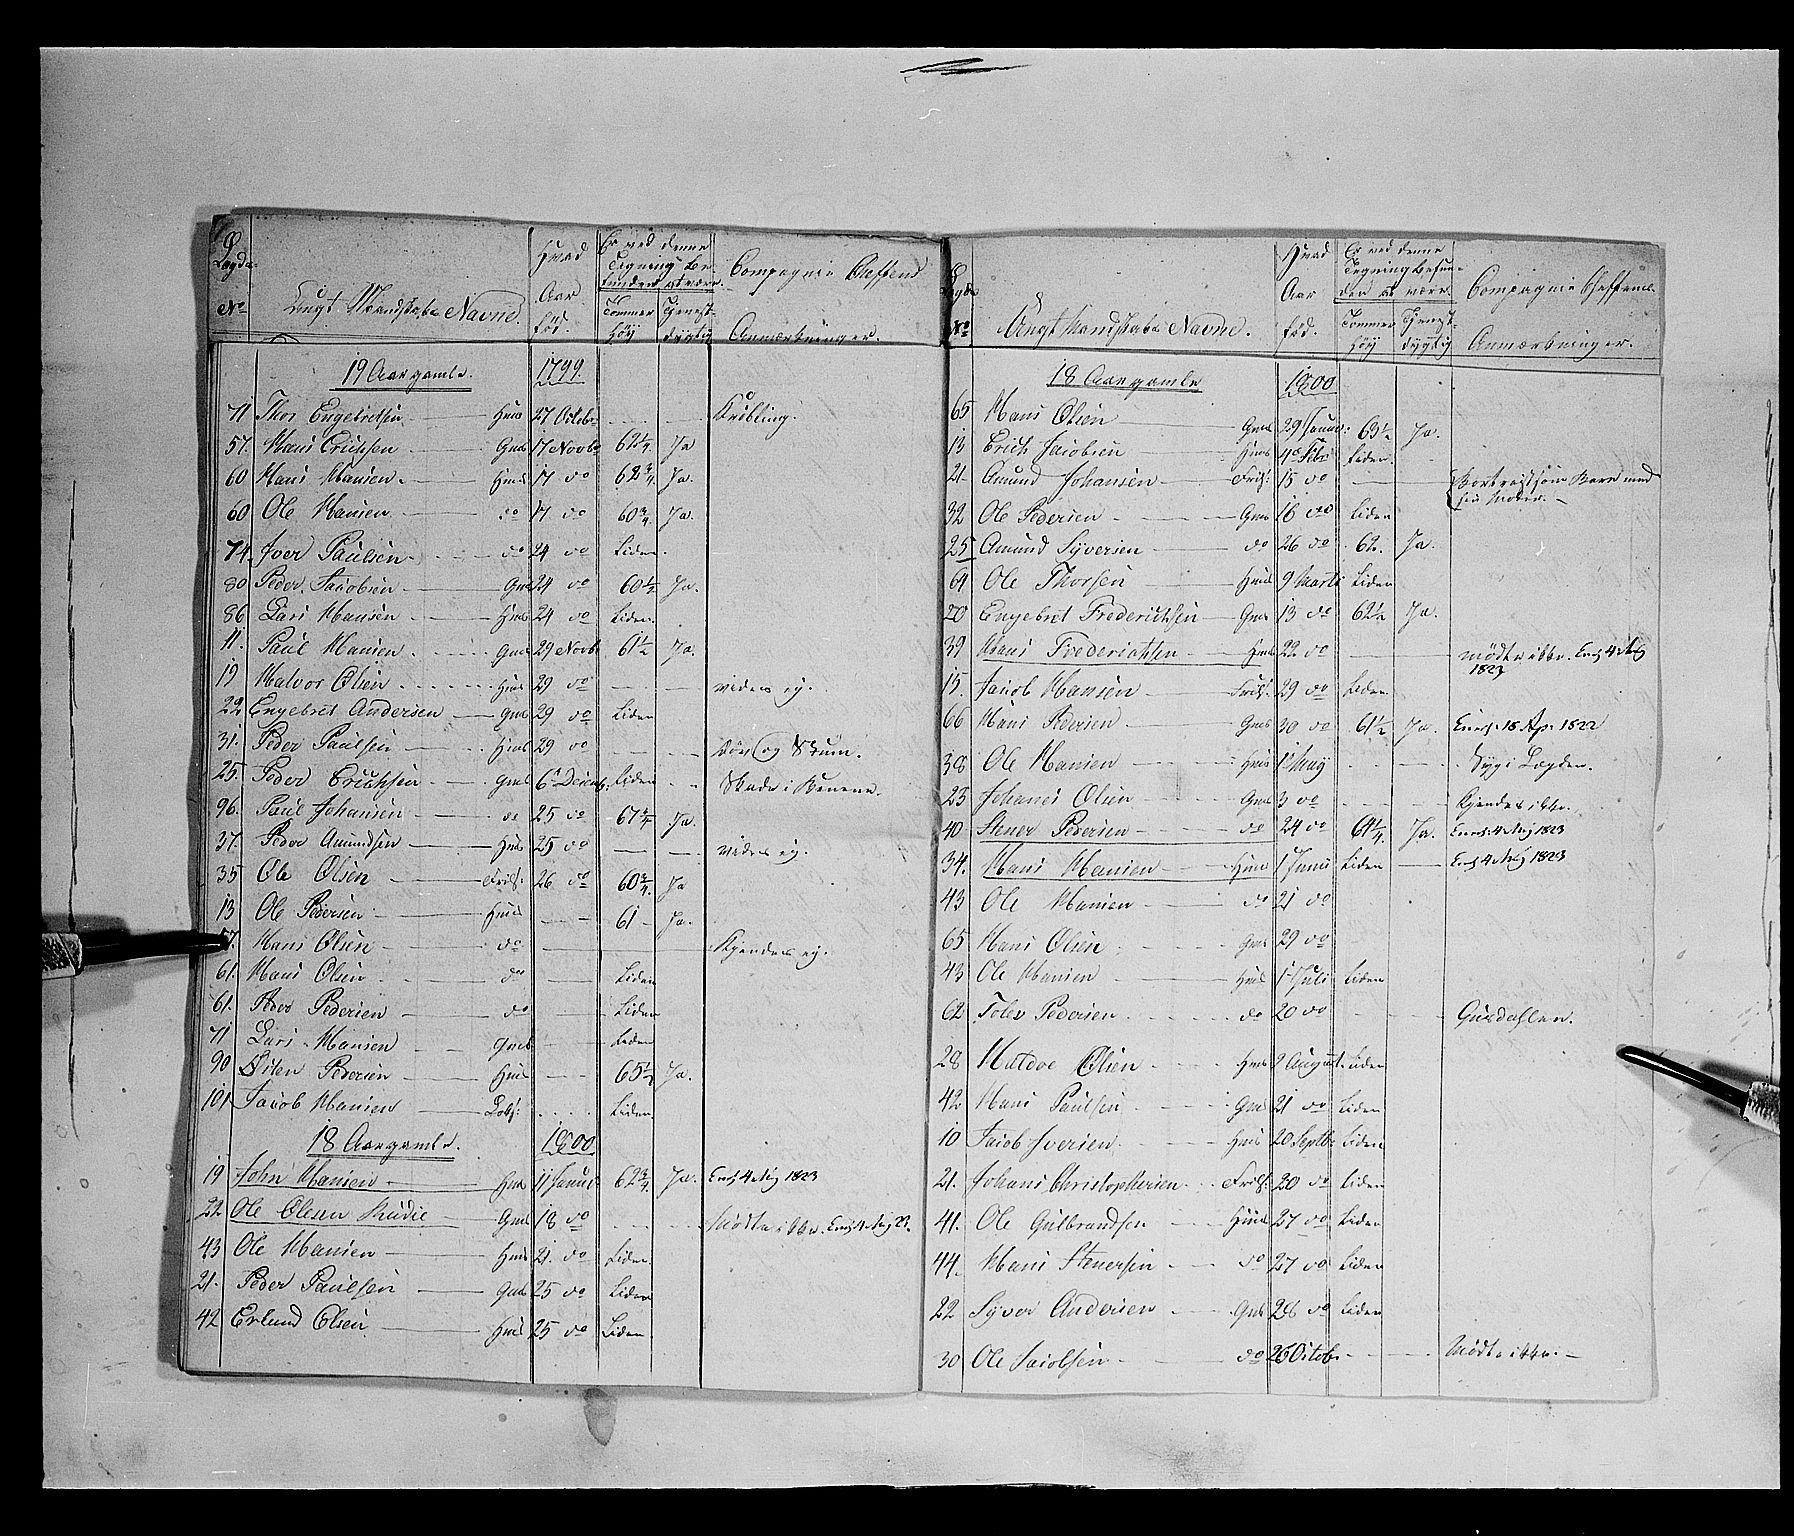 Lægds
No
Ungt Mandskabs Navne.
Hvad Aar fød.
Er ved denne Tegning befunden at være
Tommer høy
Tjenestdygtig
Compagnie Cheffens Anmærkninger.
19 Aar gamle. 1799.
71 Thor Engebretsen — Huus 27 Octobr — — Krøbling.
57. Hans Erichsen — Gms 17 Novbr 62 1/4 Ja
60 Hans Hansen — Huus 17 do 62 3/4 Ja.
60 Ole Hansen — do 17 do 60 3/4 Ja.
74. Iver Paulsen — do 24 do Liden.
80 Peder Jacobsen — Gms 24 do 60 1/2 Ja.
86 Lars Hansen — Huus 24 do Liden.
11. Paul Hansen — Gms 29 Novbr 61 1/2 Ja.
19 Halvor Olsen — Huus 29 do — — vides ey.
22 Engebret Andersen — Gms 29 do Liden
31. Peder Paulsen — Huus 29 do — — Døv og Stum.
25. Peder Erichsen — Gms 6 Decemb. Liden — Skade i Benene.
96. Paul Johansen — do 25 do 67 Ja.
37. Peder Amundsen — Huus 25 do — — vides ey.
35 Ole Olsen — Frils: 26 do 60 3/4 Ja
13 Ole Pedersen — Huus — 61 — Ja.
57. Hans Olsen — do — Kjendes ey.
61. Hans Olsen — do — Liden
61. Peder Pedersen — do — Liden
71 Lars Hansen — Gms — Liden
90 Østen Pedersen — Huus — 65 1/2 Ja.
101 Jacob Hansen — Lobs: — Liden
18 Aar gamle. 1800.
19 John Hansen — Huus 11 Januar 62 3/4 Ja. Enr: 4 Maj 1823
22 Ole Olsen Rudie — Gms 18 do — — Mødte ikke. Enr: 4 Maj 23.
43 Ole Hansen — Huus 21. do Liden
21. Peder Paulsen — Gms 25 do Liden
42 Erlund Olsen — Huus 25 do Liden.
Lægds
No
Ungt Mandskabs Navne.
Hvad Aar fød.
Er ved denne Tegning befunden at være
Tommer høy
Tjenestdygtig
Compagnie Cheffens Anmærkninger.
18 Aar gamle 1800
65 Hans Olsen — Gms 29 Januar: 63 1/2 Ja.
13 Erich Jacobsen — Huus 4 Febr Liden.
21 Amund Johansen — Frils: 15 do — Bortreist som Barn med sin Moder. —
32 Ole Pedersen — Gms 16 do Liden
25 Amund Syversen — do 26 do 62. Ja.
64 Ole Thorsen — Huus 9 Marts Liden
20 Engebret Frederichsen — Gms 13 do 62 1/2 Ja.
39 Hans Frederichsen — Huus 22 do — mødte ikke. Enr: 4 Maj 1823
15. Jacob Hansen — Frils: 29 do Liden
66 Hans Pedersen — Gms 30 do 61 1/2 Ja. Enr: 18 Ap. 1822
38 Ole Hansen — Huus 1 May — — Syg i Lægden.
23 Johanes Olsen — Gms 3 do — — Kjendes ikke.
40 Stener Pedersen — do 24 do 61 1/4 Ja. Enr: 4 Maj 1823
34. Hans Hansen — Huus 1 Juni Liden — Enr: 4 Maj 1823
43 Ole Hansen — do 21 do
65 Hans Olsen — Gms 29 do
43 Ole Hansen — Huus 1 Juli Liden
62 Tolev Pedersen — do 20 do — Guldahlen.
28 Halvor Olsen — Huus 2 August Liden
42 Hans Paulsen — Gms 21 do Liden
10 Jacob Iversen — Huus 20 Septbr Liden
21. Johans Christophersen — Frils: 20 do Liden
41. Ole Gulbrandsen — Huus 27 do Liden
44. Hans Stenersen — do 27 do Liden
22 Syver Andersen — Gms 28 do Liden
30 Ole Jacobsen — do 26 Octob — — Mødte ikke. —